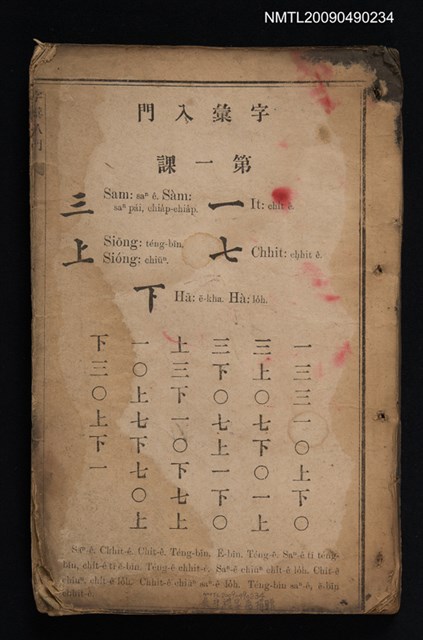 NMTL20090490234
字彙入門
第一課
一 It: chi̍t ê.
三 Sam: saⁿ ê. Sàm: saⁿ pái, chia̍p-chia̍p.
七 Chhit: chhit ê.
上 Siōng: téng-bīn. Sióng: chiūⁿ.
下 Hā: ē-kha. Hà: lo̍h.
一三三一〇上下〇
三上〇七下〇一上
三下〇七上一下〇
上三下一〇下七上
一〇上七下七〇上
下三〇上下一
Saⁿ-ê. Chhit-ê. Chi̍t-ê. Téng-bīn. Ē-bīn. Téng-ē. Saⁿ-ê tī téng-
bīn, chi̍t-ê tī ē-bīn. Téng-ē chhit-ê. Saⁿ-ê chiūⁿ chi̍t-ê lo̍h. Chit-ê
chiūⁿ, chi̍t-ê lo̍h. Chhit-ê chiūⁿ saⁿ-ê lo̍h. Téng-bīn saⁿ-ê, ē-bīn
chhit-ê.